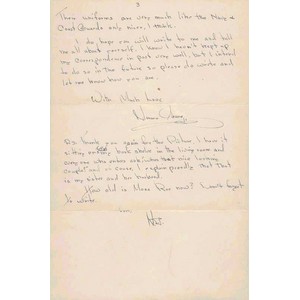 3
Their uniforms are very much like the Navy &
Coast Guards only nicer, I think.
I do hope you will write to me and tell
me all about yourself. I know I haven't kept up
my correspondence in past very well, but I intend
to do so in the future so please do write and
let me know how you are.
With Much Love,
Norma
P.S. Thank you again for the Picture, I have it
sitting on book shelve in the living room and
everyone who enters exclaims that nice looking
couple and of course, I explain proudly that that
is my sister and her husband.
How old is now? Don't forget
to write.
Love,